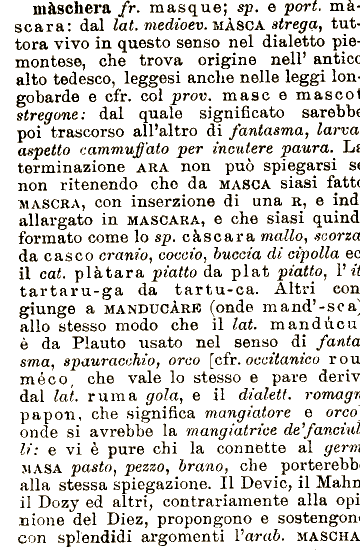 màschera fr. masque; sp. e port. mà-
scara: dal lat. medioev. MÀSCA strega, tut-
tora vivo in questo senso nel dialetto pie-
montese, che trova origine nell' antico
alto tedesco, leggesi anche nelle leggi lon-
gobarde e cfr. col prov. masc e mascot
stregone: dal quale significato sarebbe
poi trascorso all'altro di fantasma, larva
aspetto cammuffato per incutere paura. La
terminazione ARA non può spiegarsi se
non ritenendo che da MASCA siasi fatto
MASCRA, con inserzione di una R, e ind
allargato in MASCARA, e che siasi quind
formato come lo sp. càscara mallo, scorza
da casco cranio, coccio, buccia di cipolla ec
il cat. plàtara piatto da plat piatto, l'it
tartaru-ga da tartu-ca. Altri con
giunge a MANDUCÀRE (onde mand'-sca)
allo stesso modo che il lat. mandúcu
è da Plauto usato nel senso di fanta
sma, spauracchio, orco [cfr. occitanico rou
méco, che vale lo stesso e pare deriv
dal lat. ruma gola, e il dialett. romagn
papon, che significa mangiatore e orco
onde si avrebbe la mangiatrice de'fanciul
li: e vi è pure chi la connette al germ
MASA pasto, pezzo, brano, che porterebbe
alla stessa spiegazione. Il Devic, il Mahn
il Dozy ed altri, contrariamente alla opi
nione del Diez, propongono e sostengono
con splendidi argomenti l'arab. MASCHA